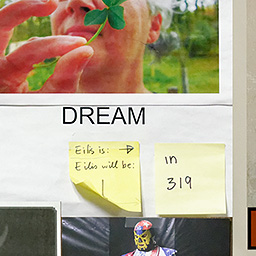 DREAM
Eilis is: →
Eilis will be:
in
319